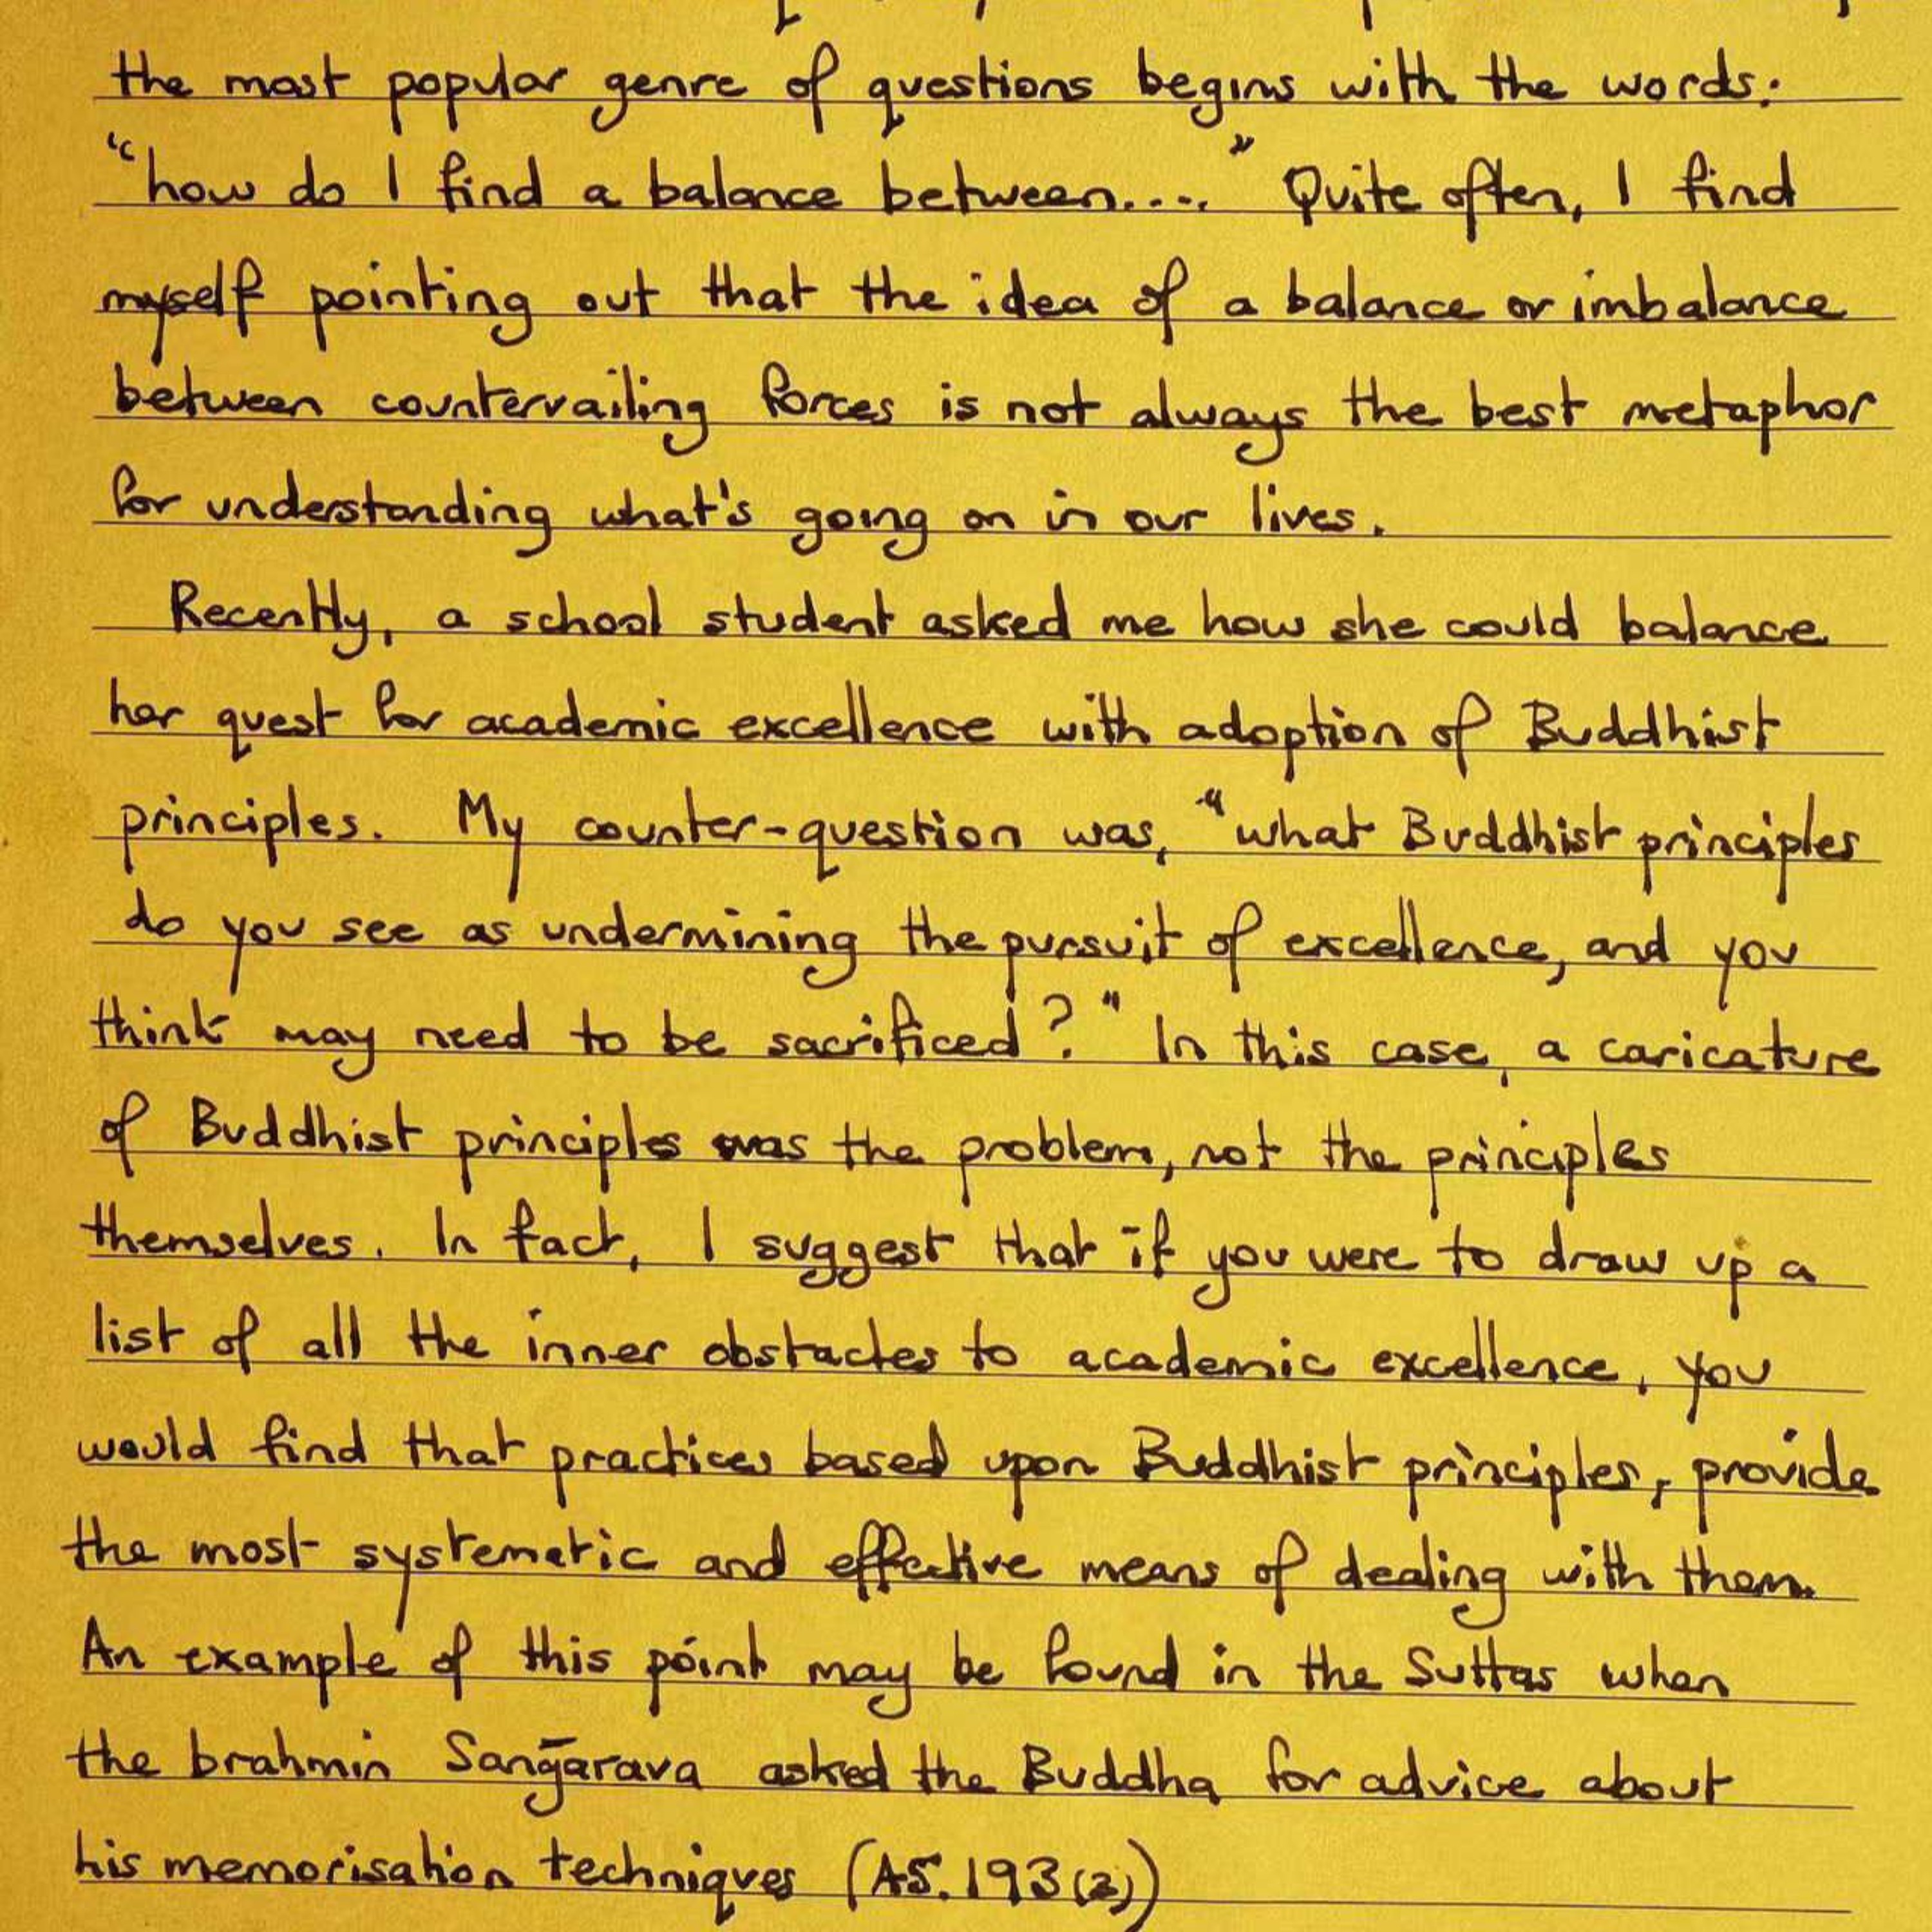 the most popular genre of questions begins with the words:
"how do I find a balance between...." Quite often, I find
myself pointing out that the idea of a balance or imbalance
between countervailing forces is not always the best metaphor
for understanding what's going on in our lives.
Recently, a school student asked me how she could balance
her quest for academic excellence with adoption of Buddhist
principles. My counter-question was, "what Buddhist principles
do you see as undermining the pursuit of excellence, and you
think may need to be sacrificed?" In this case, a caricature
of Buddhist principles was the problem, not the principles
themselves. In fact, I suggest that if you were to draw up a
list of all the inner obstacles to academic excellence, you
would find that practices based upon Buddhist principles, provide
the most systematic and effective means of dealing with them.
An example of this point may be found in the Suttas when
the brahmin Sangārava asked the Buddha for advice about
his memorisation techniques (A5.193(3))